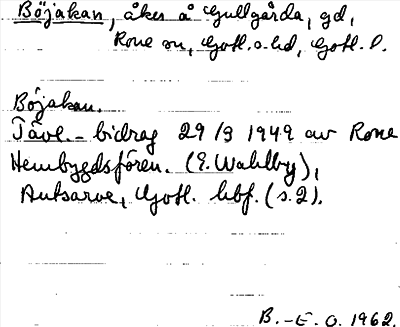 Böjakan, åker å Gullgårda, gd,
Rone sn, Gotl. s. hd, Gotl. l.
Böjakan.
Tävl. - bidrag 29/3 1949 av Rone
Hembygdsfören. (E. Wahlby),
Autsarve, Gotl. hbf. (s. 2).
B.-E. O. 1962.